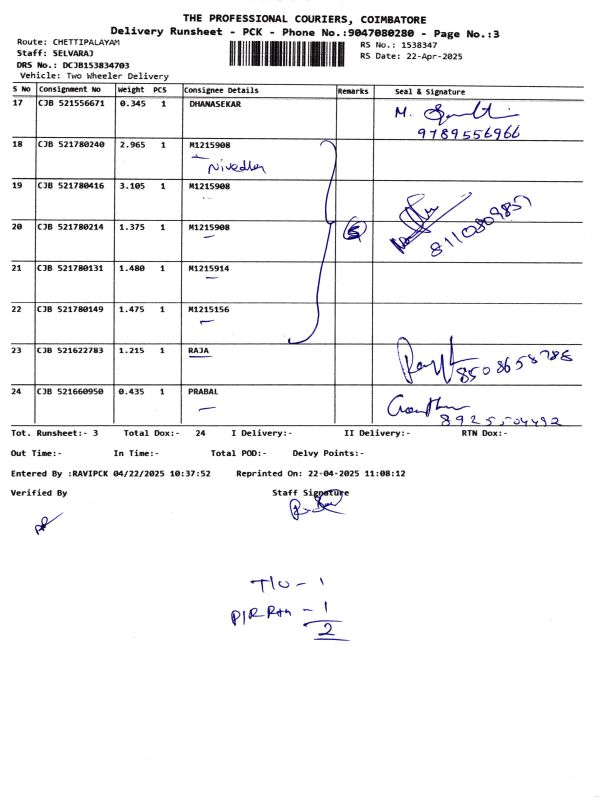 THE PROFESSIONAL COURIERS, COIMBATORE
Delivery Runsheet - PCK - Phone No.:9047080280 - Page No.:3
Route: CHETTIPALAYAM
RS No.: 1538347
Staff: SELVARAJ
RS Date: 22-Apr-2025
DRS No.: DCJB153834703
Vehicle: Two Wheeler Delivery
S No Consignment No Weight PCS Consignee Details Remarks Seal & Signature
17 CJB 521556671 0.345 1 DHANASEKAR
9789556966
18 CJB 521780240 2.965 1 M1215908
Nivedha
19 CJB 521780416 3.105 1 M1215908
20 CJB 521780214 1.375 1 M1215908 5
8110809857
21 CJB 521780131 1.480 1 M1215914
22 CJB 521780149 1.475 1 M1215156
23 CJB 521622783 1.215 1 RAJA
8508658788
24 CJB 521660950 0.435 1 PRABAL
8925504492
Tot. Runsheet:- 3 Total Dox:- 24 I Delivery:- II Delivery:- RTN Dox:-
Out Time:- In Time:- Total POD:- Delvy Points:-
Entered By :RAVIPCK 04/22/2025 10:37:52 Reprinted On: 22-04-2025 11:08:12
Verified By Staff Signature
T/O - 1
- 1
2